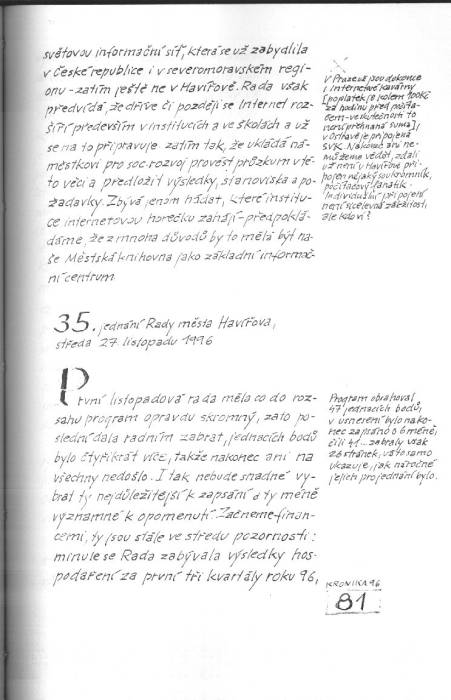 světovou informační síť, která se už zabydlila
v České republice i v severomoravském regi-
onu - zatím ještě ne v Havířově. Rada však
předvídá, že dříve či později se Internet roz-
šíří především v institucích a ve školách a už
se na to připravuje zatím tak, že ukládá ná-
městkovi pro soc. rozvoj provést průzkum v té-
to věci a předložit výsledky, stanoviska a po-
žadavky. Zbývá jenom hádat, které institu-
ce internetovou horečku zahájí - předpoklá-
dáme, že z mnoha důvodů by to měla být na-
še Městská knihovna jako základní informač-
ní centrum
V Praze už jsou dokonce
i internetové kavárny
[poplatek je kolem 100Kč
za hodinu před počíta-
čem - ve skutečnosti to
není přehnaná suma],
v Ostravě je připojena
SVK. Nakonec ani ne-
můžeme vědět, zdali
už není v Havířově při-
pojen nějaký soukromník,
počítačový fanatik.
Individuální připojení
není sice levná záležitost,
ale kdo ví?
35. jednání Rady města Havířova,
středa 27. listopadu 1996
První listopadová rada měla co do roz-
sahu program opravdu skromný, zato po-
slední dala radním zabrat, jednacích bodů
bylo čtyřikrát více, takže nakonec ani na
všechny nedošlo. I tak nebude snadné vy-
brat ty nejdůležitější k zapsání a ty méně
významné k opomenutí. Začneme finan-
cemi, ty jsou stále ve středu pozornosti:
minule se Rada zabývala výsledky hos-
podaření za první tři kvartály roku 96,
Program obsahoval
47 jednacích bodů,
v usnesení bylo nako-
nec zapsáno o 6 méně,
čili 41... zabraly však
26 stránek, už to samo
ukazuje, jak náročné
jejich projednání bylo.
KRONIKA 96
81